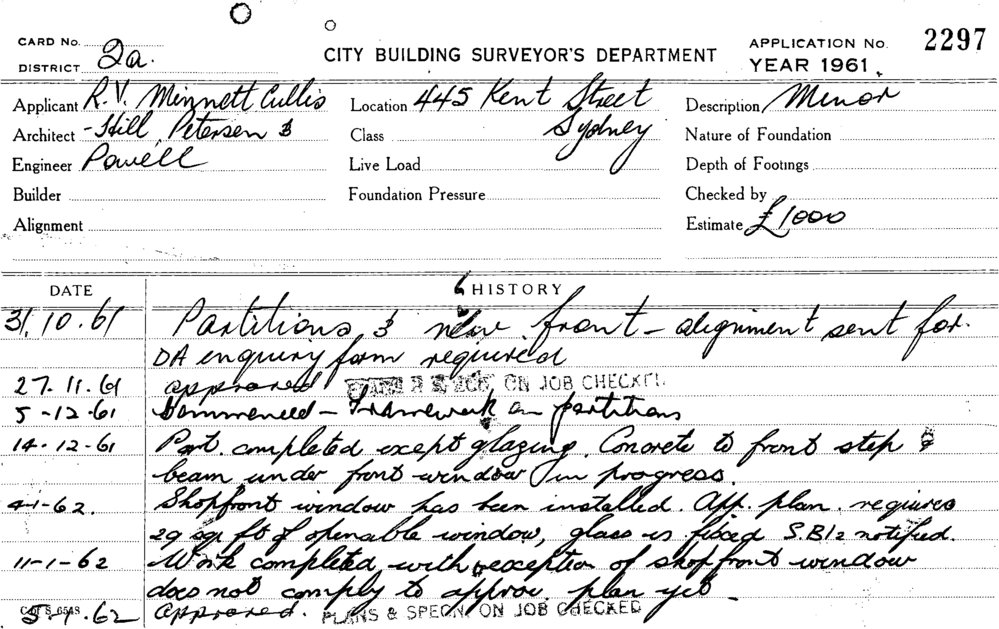 CARD No.
DISTRICT 2a.
CITY BUILDING SURVEYOR'S DEPARTMENT
APPLICATION No. 2297
YEAR 1961.
Applicant R. V. Minnett Cullis
Location 445 Kent Street
Description Minor
Architect - Hill, Petersen &
Class Sydney
Nature of Foundation
Engineer Powell
Live Load
Depth of Footings
Builder
Foundation Pressure
Checked by
Alignment
Estimate £1000
DATE HISTORY
31.10.61 Partitions & new front - alignment sent for.
DA enquiry form required
27.11.61 approved ON JOB CHECKED
5-12-61 Commenced - Framework on partitions
14-12-61 Part. completed except glazing. Concrete to front step &
beam under front window in progress.
4-1-62. Shopfront window has been installed. App. plan. requires
29 sqr ft of openable window, glass is fixed S.B12 notified.
11-1-62 Work completed with exception of shopfront window
does not comply to approv. plan yet -
.62 approved. PLANS & SPECN. ON JOB CHECKED
C of S 6548